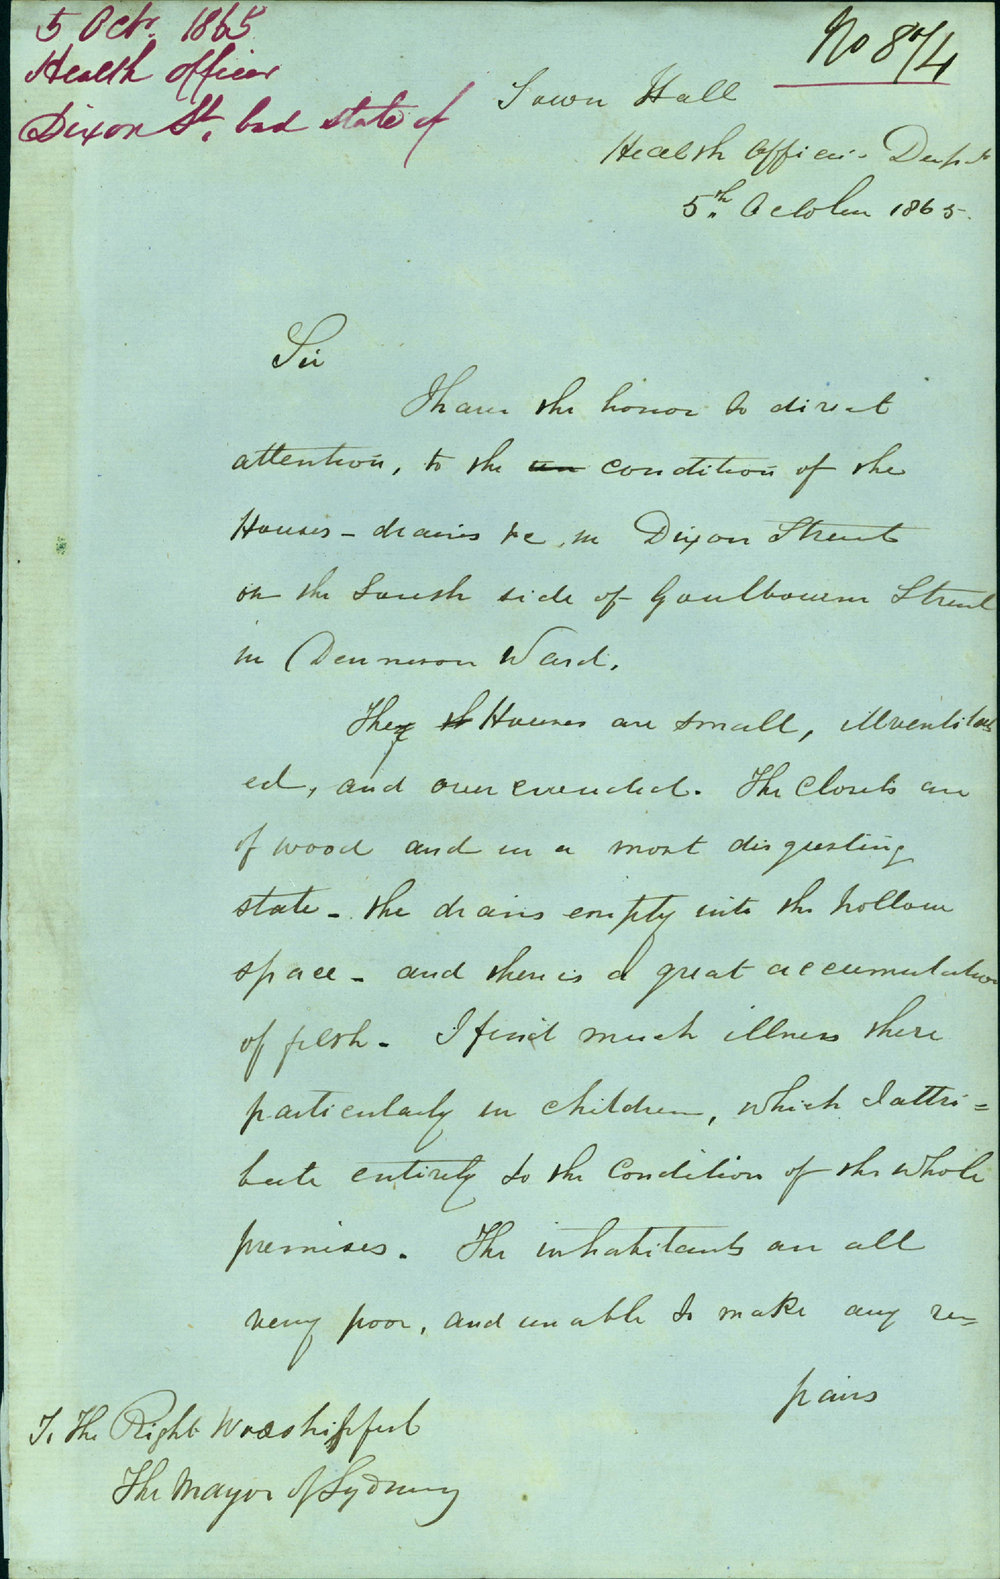 5 Octr. 1865
Health officer
Dixon St, bad state of
No 874
Town Hall
Health Officer's Dept
5th October 1865.
Sir
I have the honor to direct
attention, to the condition of the
Houses - drains &c, in Dixon Street
on the South side of Goulbourn Street
in Dennison Ward.
The Houses are small, illventilat
ed, and over crowded. The closets are
of wood and in a most disgusting
state - the drains empty into the hollow
space - and there is a great accumulation
of filth - I find much illness there
particularly in children, which I attri=
bute entirely to the condition of the whole
premises. The inhabitants are all
very poor, and unable to make any re=
pairs
To The Right Worshipful
The Mayor of Sydney